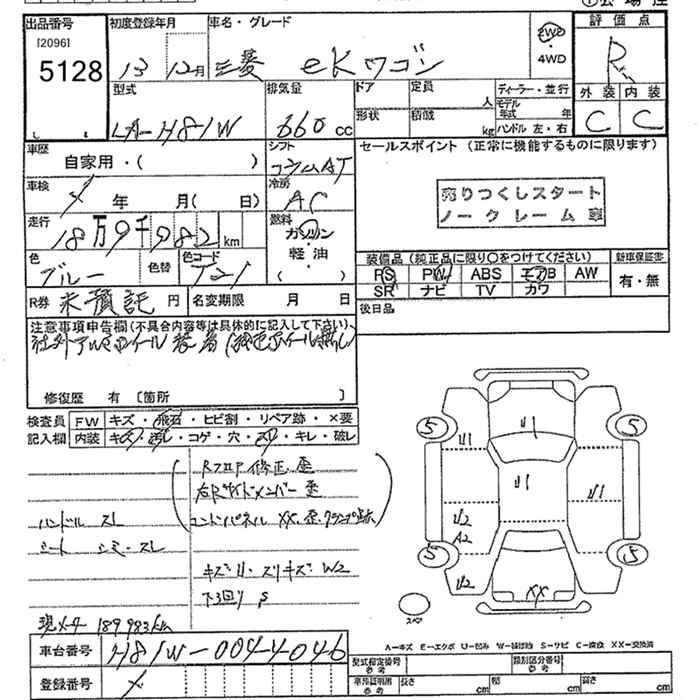 出品番号
[2096]
5128
初度登録年月
13 12月
車名・グレード
三菱 eKワゴン
2WD
・
4WD
評価点
R
外装 内装
C C
型式
LA-H81W
排気量
660 cc
ドア
定員
人
形状
積載
kg
ディーラー・並行
モデル年式 年
ハンドル 左・右
車歴
自家用・( )
シフト
コラムAT
車検
年 月( 日)
冷房
AC
走行
18万9千982km
燃料
ガソリン
・
軽・油
( )
色
ブルー
色替
色コード
T21
R券 未積託 円
名変期限 月 日
セールスポイント (正常に機能するものに限ります)
売りつくしスタート
ノークレーム車
装備品(純正品に限り○をつけてください)
PS PW ABS エアB AW
SR ナビ TV カワ
新車保証書
有・無
後日品
注意事項申告欄(不具合内容等は具体的に記入して下さい)
社外アルミホイール装着(純正ホイール無し)
修復歴 有 [箇所 ]
検査員
記入欄
FW キズ・飛石・ヒビ割・リペア跡・×要
内装 キズ・汚し・コゲ・穴・スレ・キレ・破レ
RフロP修正歪
右Rサイドメンバー歪
コアサパネルXX・歪・クランプ跡
ハンドル スレ
シート シミ・スレ
キズU・スリキズW2
下回りS
現メーター 189,983km
車台番号 H81W-0044046
登録番号
U1
U1
U1
U1
U2
A2
U2
XX
5
5
5
5
スペア
A-キズ E-エクボ U-凹み W-補修跡 S-サビ C-腐蝕 XX-交換済
型式指定番号
参考
類別区分番号
参考
車庫証明用
参考
長さ cm
幅 cm
高さ cm